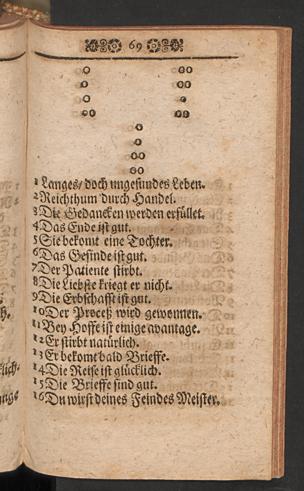 69
1 Langes/ doch ungesundes Leben.
2 Reichthum durch Handel.
3 Die Gedancken werden erfüllet.
4 Das Ende ist gut.
5 Sie bekomt eine Tochter.
6 Das Gesinde ist gut.
7 Der Patiente stirbt.
8 Die Liebste kriegt er nicht.
9 Die Erbschafft ist gut.
10 Der Proceß wird gewonnen.
11 Bey Hoffe ist einige avantage.
12 Er stirbt natürlich.
13 Er bekomt bald Brieffe.
14 Die Reise ist glücklich.
15 Die Brieffe sind gut.
16 Du wirst deines Feindes Meister.